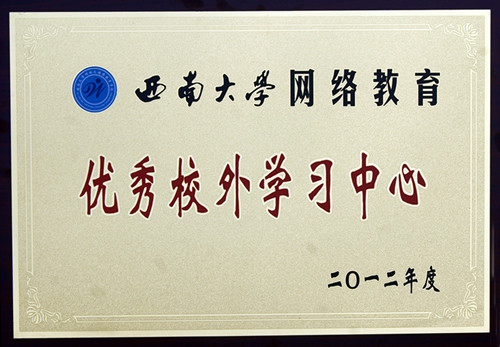 西南大学网络教育
优秀校外学习中心
二〇一二年度